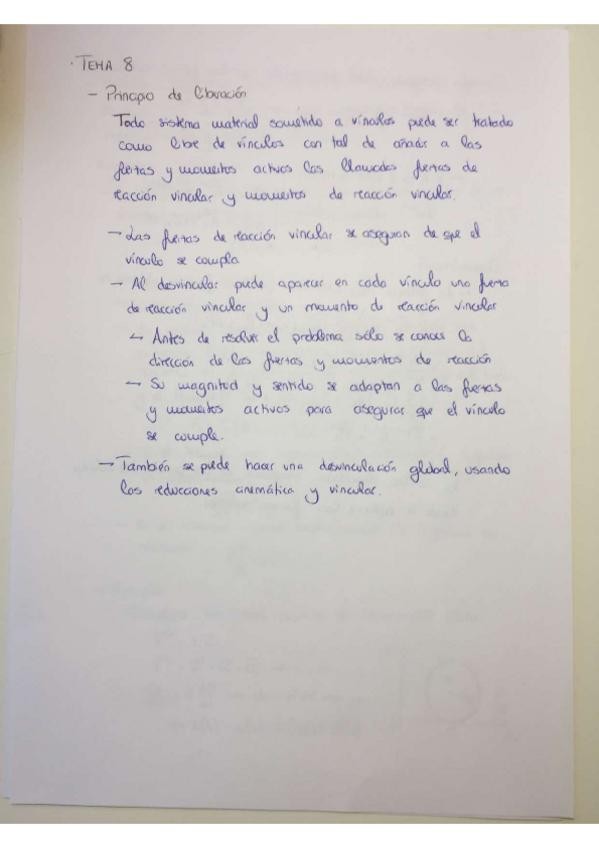 · TEMA 8
- Principio de liberación
Todo sistema material sometido a vínculos puede ser tratado
como libre de vínculos con tal de añadir a las
fuerzas y momentos activos las llamadas fuerzas de
reacción vincular y momentos de reacción vincular.
→ Las fuerzas de reacción vincular se aseguran de que el
vínculo se cumpla
→ Al desvincular puede aparecer en cada vínculo una fuerza
de reacción vincular y un momento de reacción vincular
↳ Antes de resolver el problema sólo se conoce la
dirección de las fuerzas y momentos de reacción
→ Su magnitud y sentido se adaptan a las fuerzas
y momentos activos para asegurar que el vínculo
se cumple.
→ También se puede hacer una desvinculación global, usando
las reducciones cinemática y vincular.